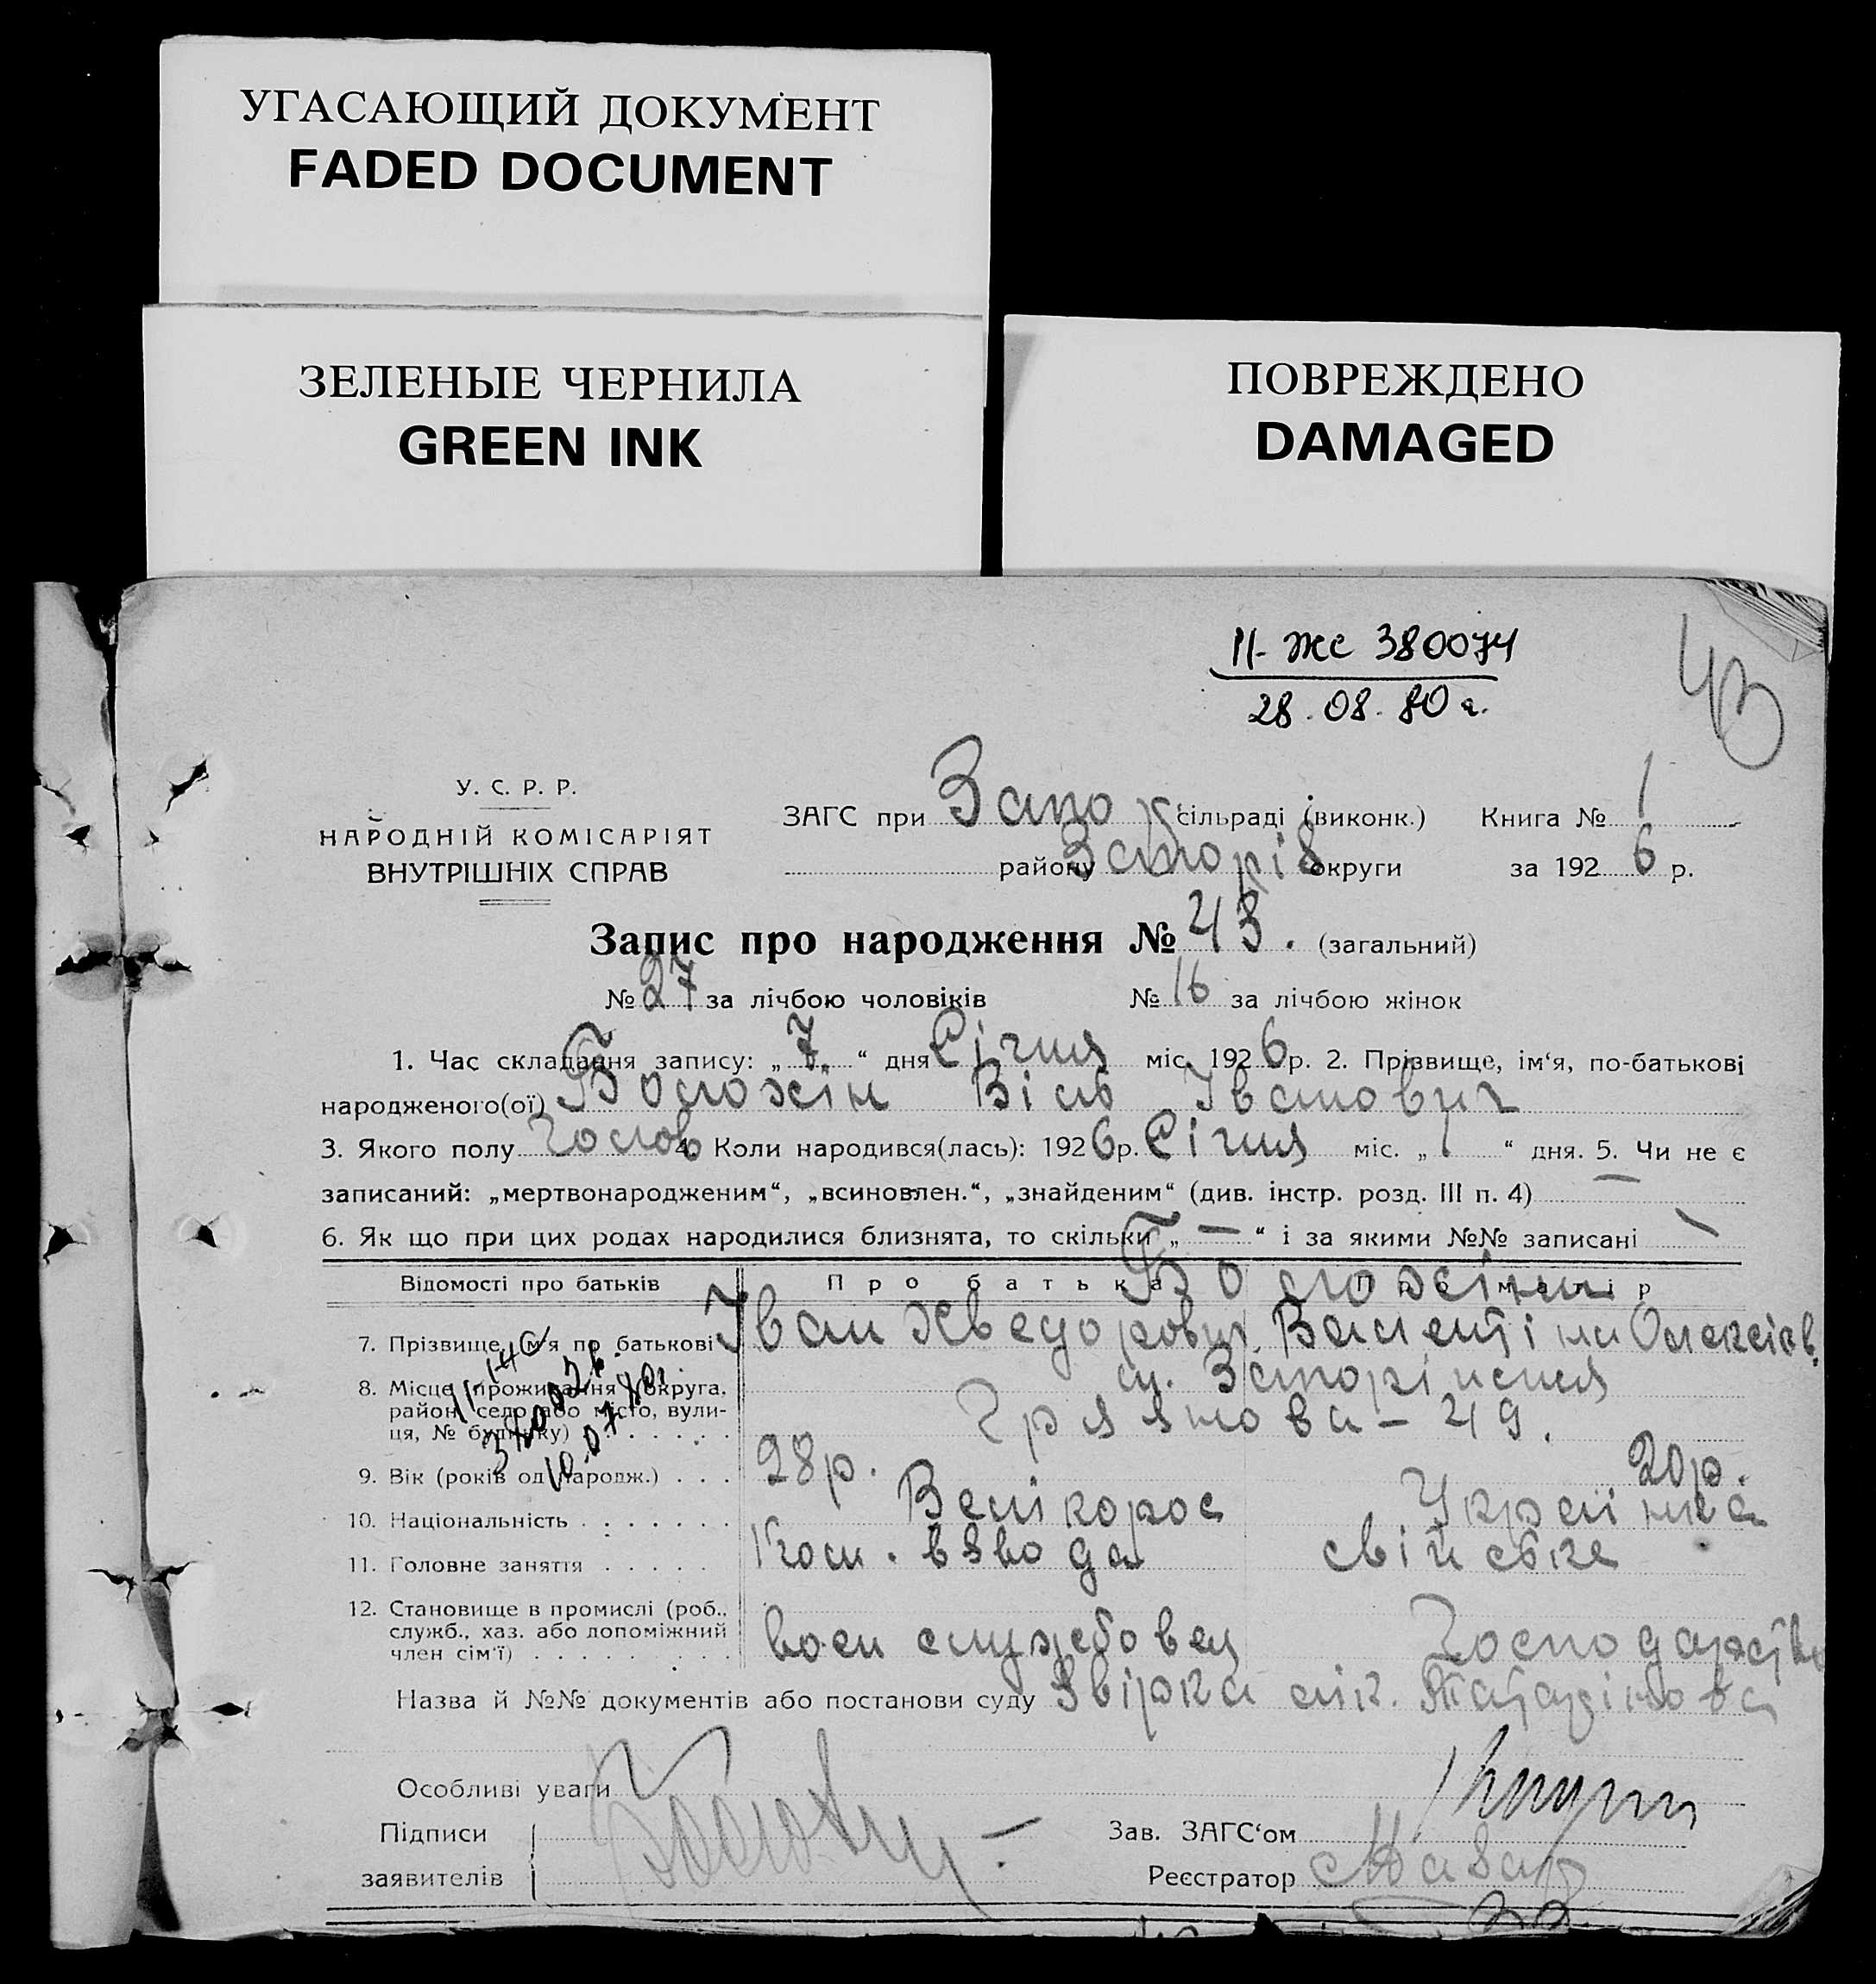 УГАСАЮЩИЙ ДОКУМЕНТ
FADED DOCUMENT
ЗЕЛЕНЫЕ ЧЕРНИЛА
GREEN INK
ПОВРЕЖДЕНО
DAMAGED
II-ЖС 380074
28.08.80 г.
43
У. С. Р. Р.
НАРОДНІЙ КОМІСАРІЯТ
ВНУТРІШНІХ СПРАВ
ЗАГС при Запо сільраді (виконк.) Книга № 1
району округи за 1926 р.
Запис про народження № 43. (загальний)
№ 27 за лічбою чоловіків № 16 за лічбою жінок
1. Час складання запису: „7“ дня Січня міс. 1926 р. 2. Прізвище, ім‘я, по-батькові
народженого(ої) Іванович
3. Якого полу Чолов 4. Коли народився(лась): 1926 р. Січня міс. „1“ дня. 5. Чи не є
записаний: „мертвонародженим“, „всиновлен.“, „знайденим“ (див. інстр. розд. III п. 4) —
6. Як що при цих родах народилися близнята, то скільки „—“ і за якими №№ записані
Відомості про батьків Про батька
7. Прізвище, ім‘я по батькові Іван Хведорович Валентіна Олексіїв.
8. Місце проживання (округа, район, село або місто, вулиця, № будинку) м. Запоріжжя
49.
9. Вік (років од народж.) 28р. 20р.
10. Національність Велікорос Українка
11. Головне заняття взвода свійське
12. Становище в промислі (роб., служб., хаз. або допоміжний член сім‘ї) воен службовец Господарство
Назва й №№ документів або постанови суду
Особливі уваги
Підписи
заявителів
Зав. ЗАГС‘ом
Реєстратор